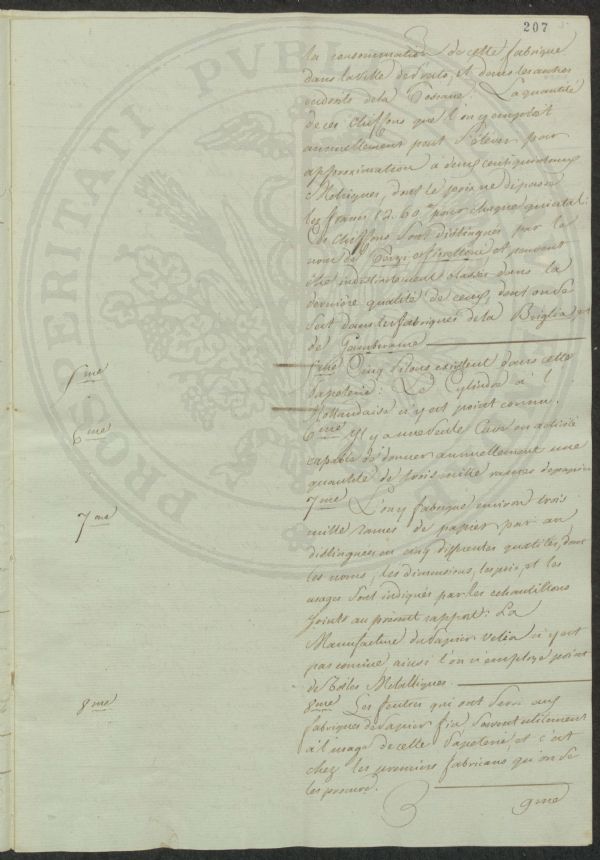 207
PROSPERITATI PVBLI
la consommation de cette fabrique
dans la Ville de Prato, et dans les autres
endroits de la Toscane. La quantité
de ces chiffons que l'on y emploit
annuellement peut s'élever par
approximation à deux cent quintaux
Métriques, dont le prix ne dépasse
les francs 12.60 pour chaque quintal.
Ces chiffons sont distingués par le
nom de et peuvent
être indistinctement classés dans la
dernière qualité de ceux, dont on se
sert dans les fabriques de la Briglia et
de Gamberame
5me
5me Cinq Pilons existent dans cette
Papeterie: Le Cylindre à l'
hollandaise n'y est point connu.
6me
6me Il y a une seule Cuve en activité
capable de donner annuellement une
quantité de trois mille rames de papier
7me
7me L'on y fabrique environ trois
mille rames de papier par an
distinguées en cinq differentes qualités, dont
les noms, les dimensions, les prix, et les
usages sont indiqués par les echantillons
joints au présent rapport: La
Manufacture du Papier Velin n'y est
pas connue ainsi l'on n'employe point
de Toiles Metalliques.
8me
8me Les feutres qui ont servi aux
fabriques de Papier fin servent utilement
à l'usage de cette Papeterie, et c'est
chez les premiers fabricans qu'on se
les procure.
9me